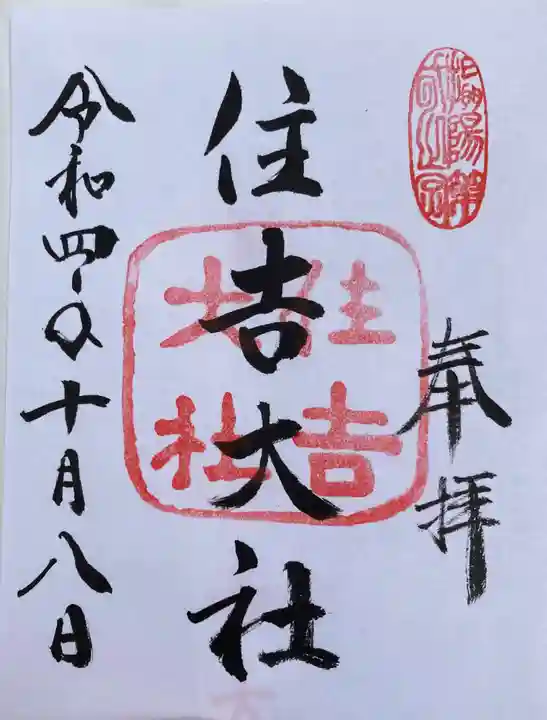 奉拝
住吉大社
住吉
大社
令和四年十月八日